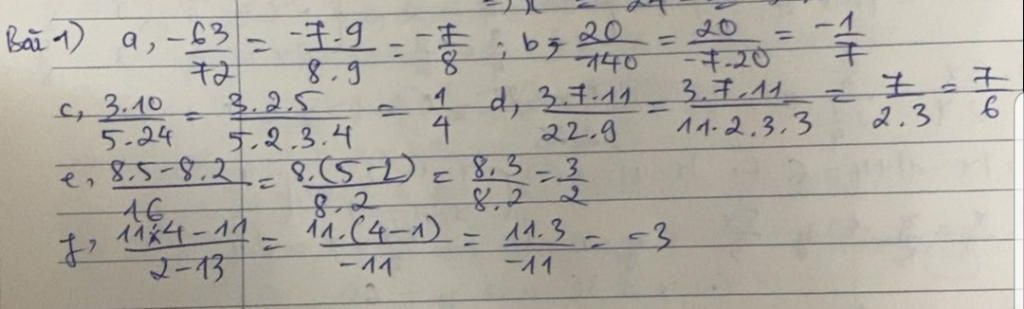 Bài 1) a, -63/72 = -7.9/8.9 = -7/8 ; b, 20/-140 = 20/-7.20 = -1/7
c, 3.10/5.24 = 3.2.5/5.2.3.4 = 1/4 d, 3.7.11/22.9 = 3.7.11/11.2.3.3 = 7/2.3 = 7/6
e, 8.5-8.2/16 = 8.(5-2)/8.2 = 8.3/8.2 = 3/2
f, 11.4-11/2-13 = 11.(4-1)/-11 = 11.3/-11 = -3